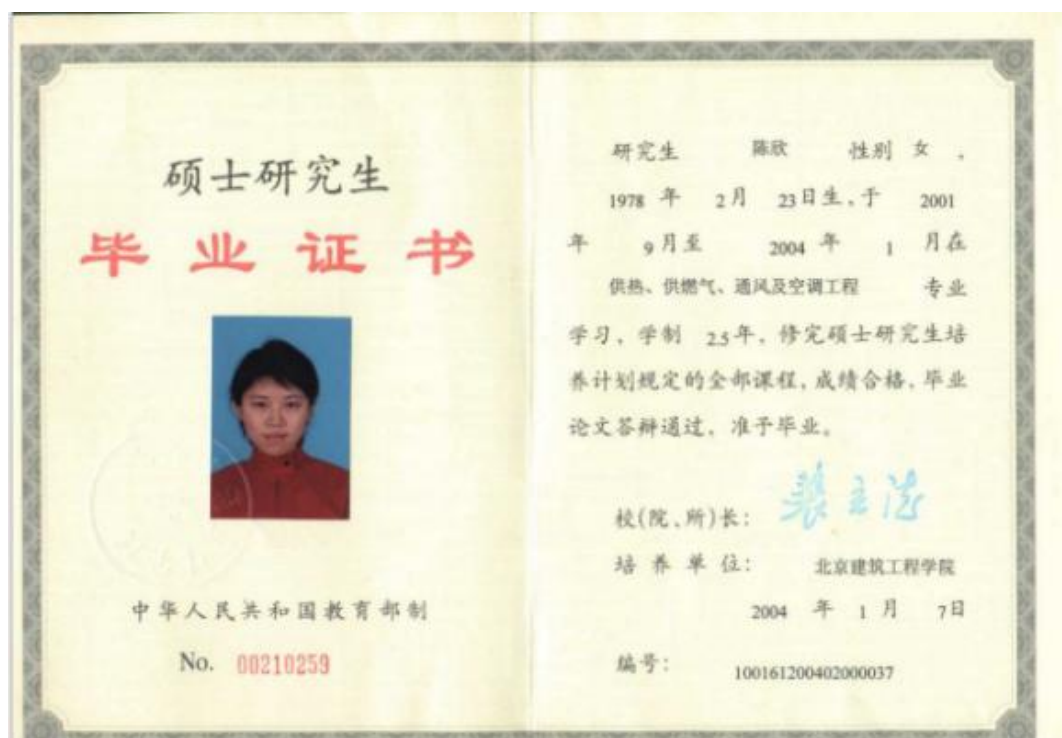 硕士研究生
毕业证书
中华人民共和国教育部制
No. 00210259
研究生 陈欣 性别 女 ，
1978 年 2月 23日生，于 2001
年 9月至 2004 年 1 月在
供热、供燃气、通风及空调工程 专业
学习，学制 2.5年，修完硕士研究生培
养计划规定的全部课程，成绩合格，毕业
论文答辩通过，准予毕业。
校(院、所)长：
培养单位： 北京建筑工程学院
2004 年 1 月 7日
编号： 100161200402000037